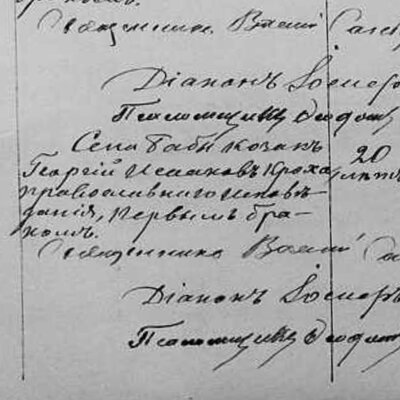 Священникъ Василій
Діаконъ Іосифъ
Псаломщикъ Ѳеодотъ
Села Бабы козакъ
Георгій Исааковъ Кроха 20
православнаго исповѣ- лѣтъ
данія, первымъ бра-
комъ.
Священникъ Василій
Діаконъ Іосифъ
Псаломщикъ Ѳеодотъ